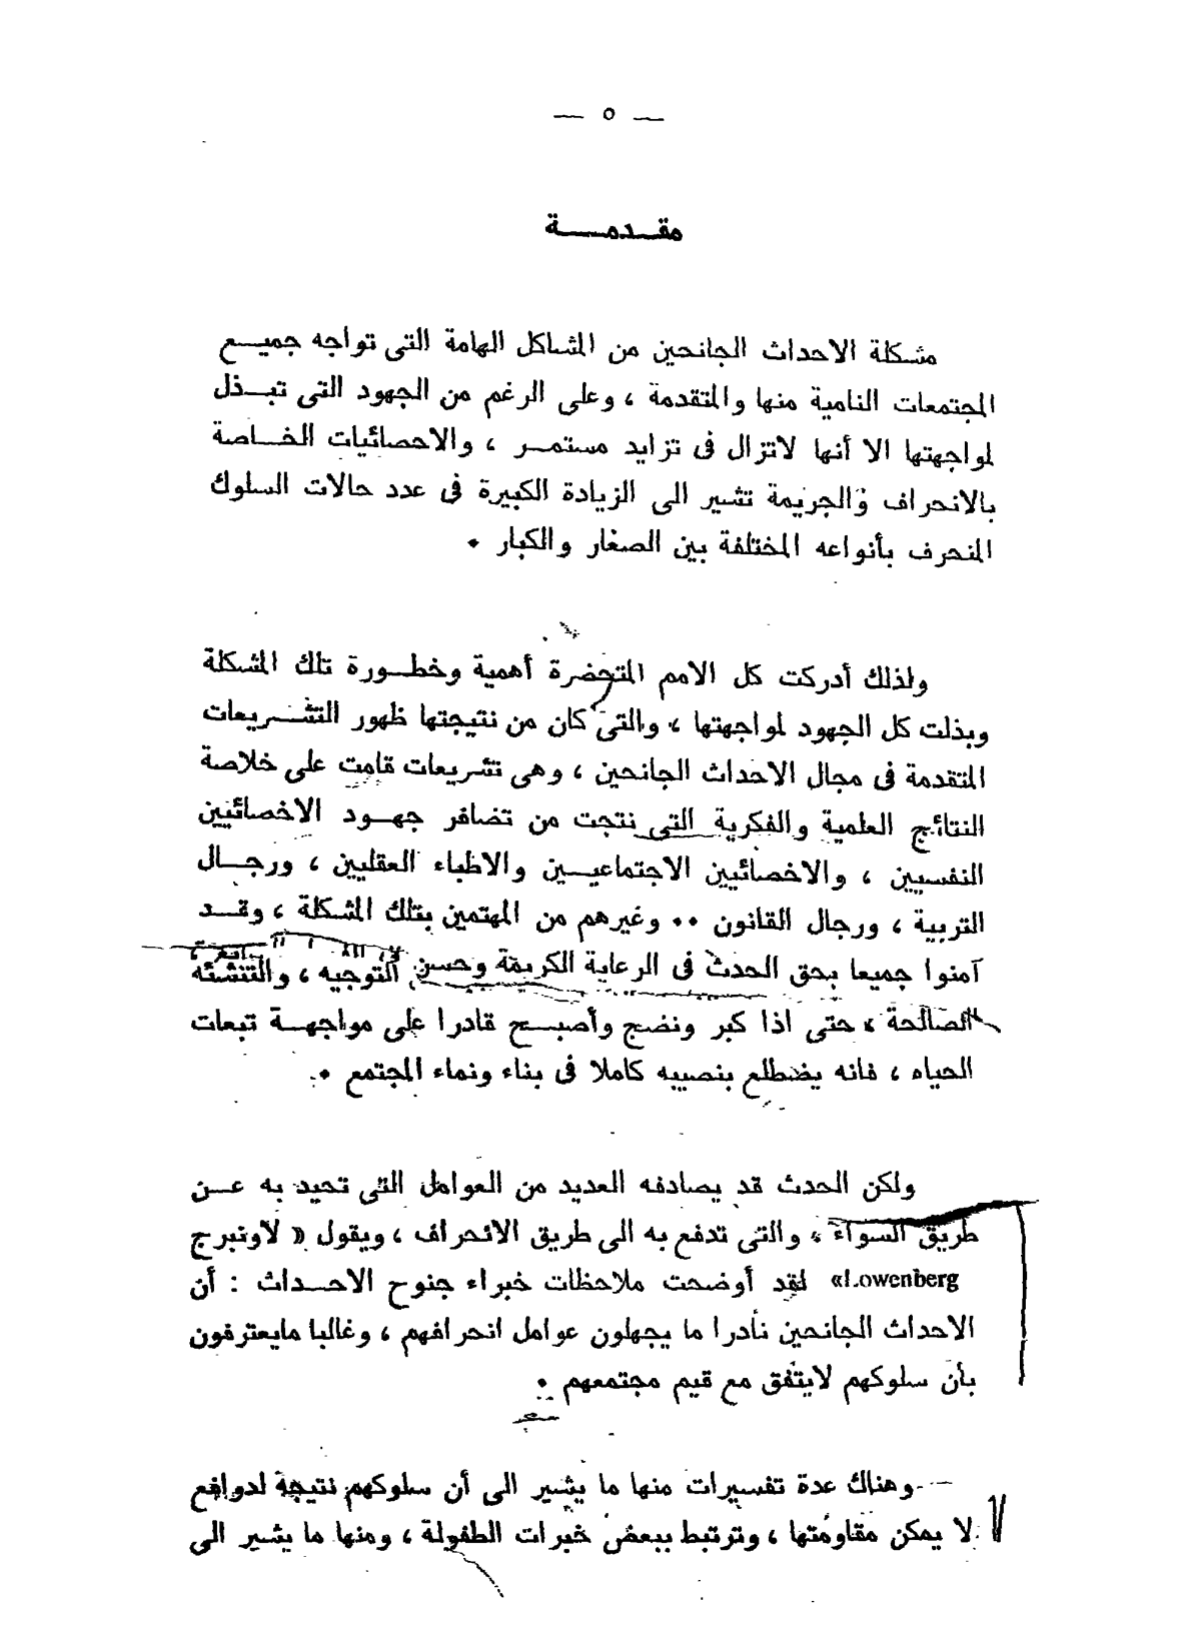 — ٥ —
مقـدمـــة
مشكلة الاحداث الجانحين من المشاكل الهامة التى تواجه جميـــع
المجتمعات النامية منها والمتقدمة ، وعلى الرغم من الجهود التى تبــذل
لمواجهتها الا أنها لاتزال فى تزايد مستمــر ، والاحصائيات الخــاصة
بالانحراف والجريمة تشير الى الزيادة الكبيرة فى عدد حالات السلوك
المنحرف بأنواعه المختلفة بين الصغار والكبار •
ولذلك أدركت كل الامم المتحضرة أهمية وخطـورة تلك المشكلة
وبذلت كل الجهود لمواجهتها ، والتى كان من نتيجتها ظهور التشــريعات
المتقدمة فى مجال الاحداث الجانحين ، وهى تشريعات قامت على خلاصة
النتائج العلمية والفكرية التى نتجت من تضافر جهــود الاخصائيين
النفسيين ، والاخصائيين الاجتماعيــين والاطباء العقليين ، ورجــال
التربية ، ورجال القانون •• وغيرهم من المهتمين بتلك المشكلة ، وقــد
آمنوا جميعا بحق الحدث فى الرعاية الكريمة وحسن التوجيه ، والتنشئه
الصالحة ، حتى اذا كبر ونضج وأصبــح قادرا على مواجهــة تبعات
الحياه ، فانه يضطلع بنصيبه كاملا فى بناء ونماء المجتمع •
ولكن الحدث قد يصادفه العديد من العوامل التى تحيد به عــن
طريق السواء ، والتى تدفع به الى طريق الانحراف ، ويقول « لاونبرج
Lowenberg» لقد أوضحت ملاحظات خبراء جنوح الاحــداث : أن
الاحداث الجانحين نادرا ما يجهلون عوامل انحرافهم ، وغالبا مايعترفون
بأن سلوكهم لايتفق مع قيم مجتمعهم •
وهناك عدة تفسيرات منها ما يشير الى أن سلوكهم نتيجة لدوافع
لا يمكن مقاومتها ، وترتبط ببعض خبرات الطفولة ، ومنها ما يشير الى